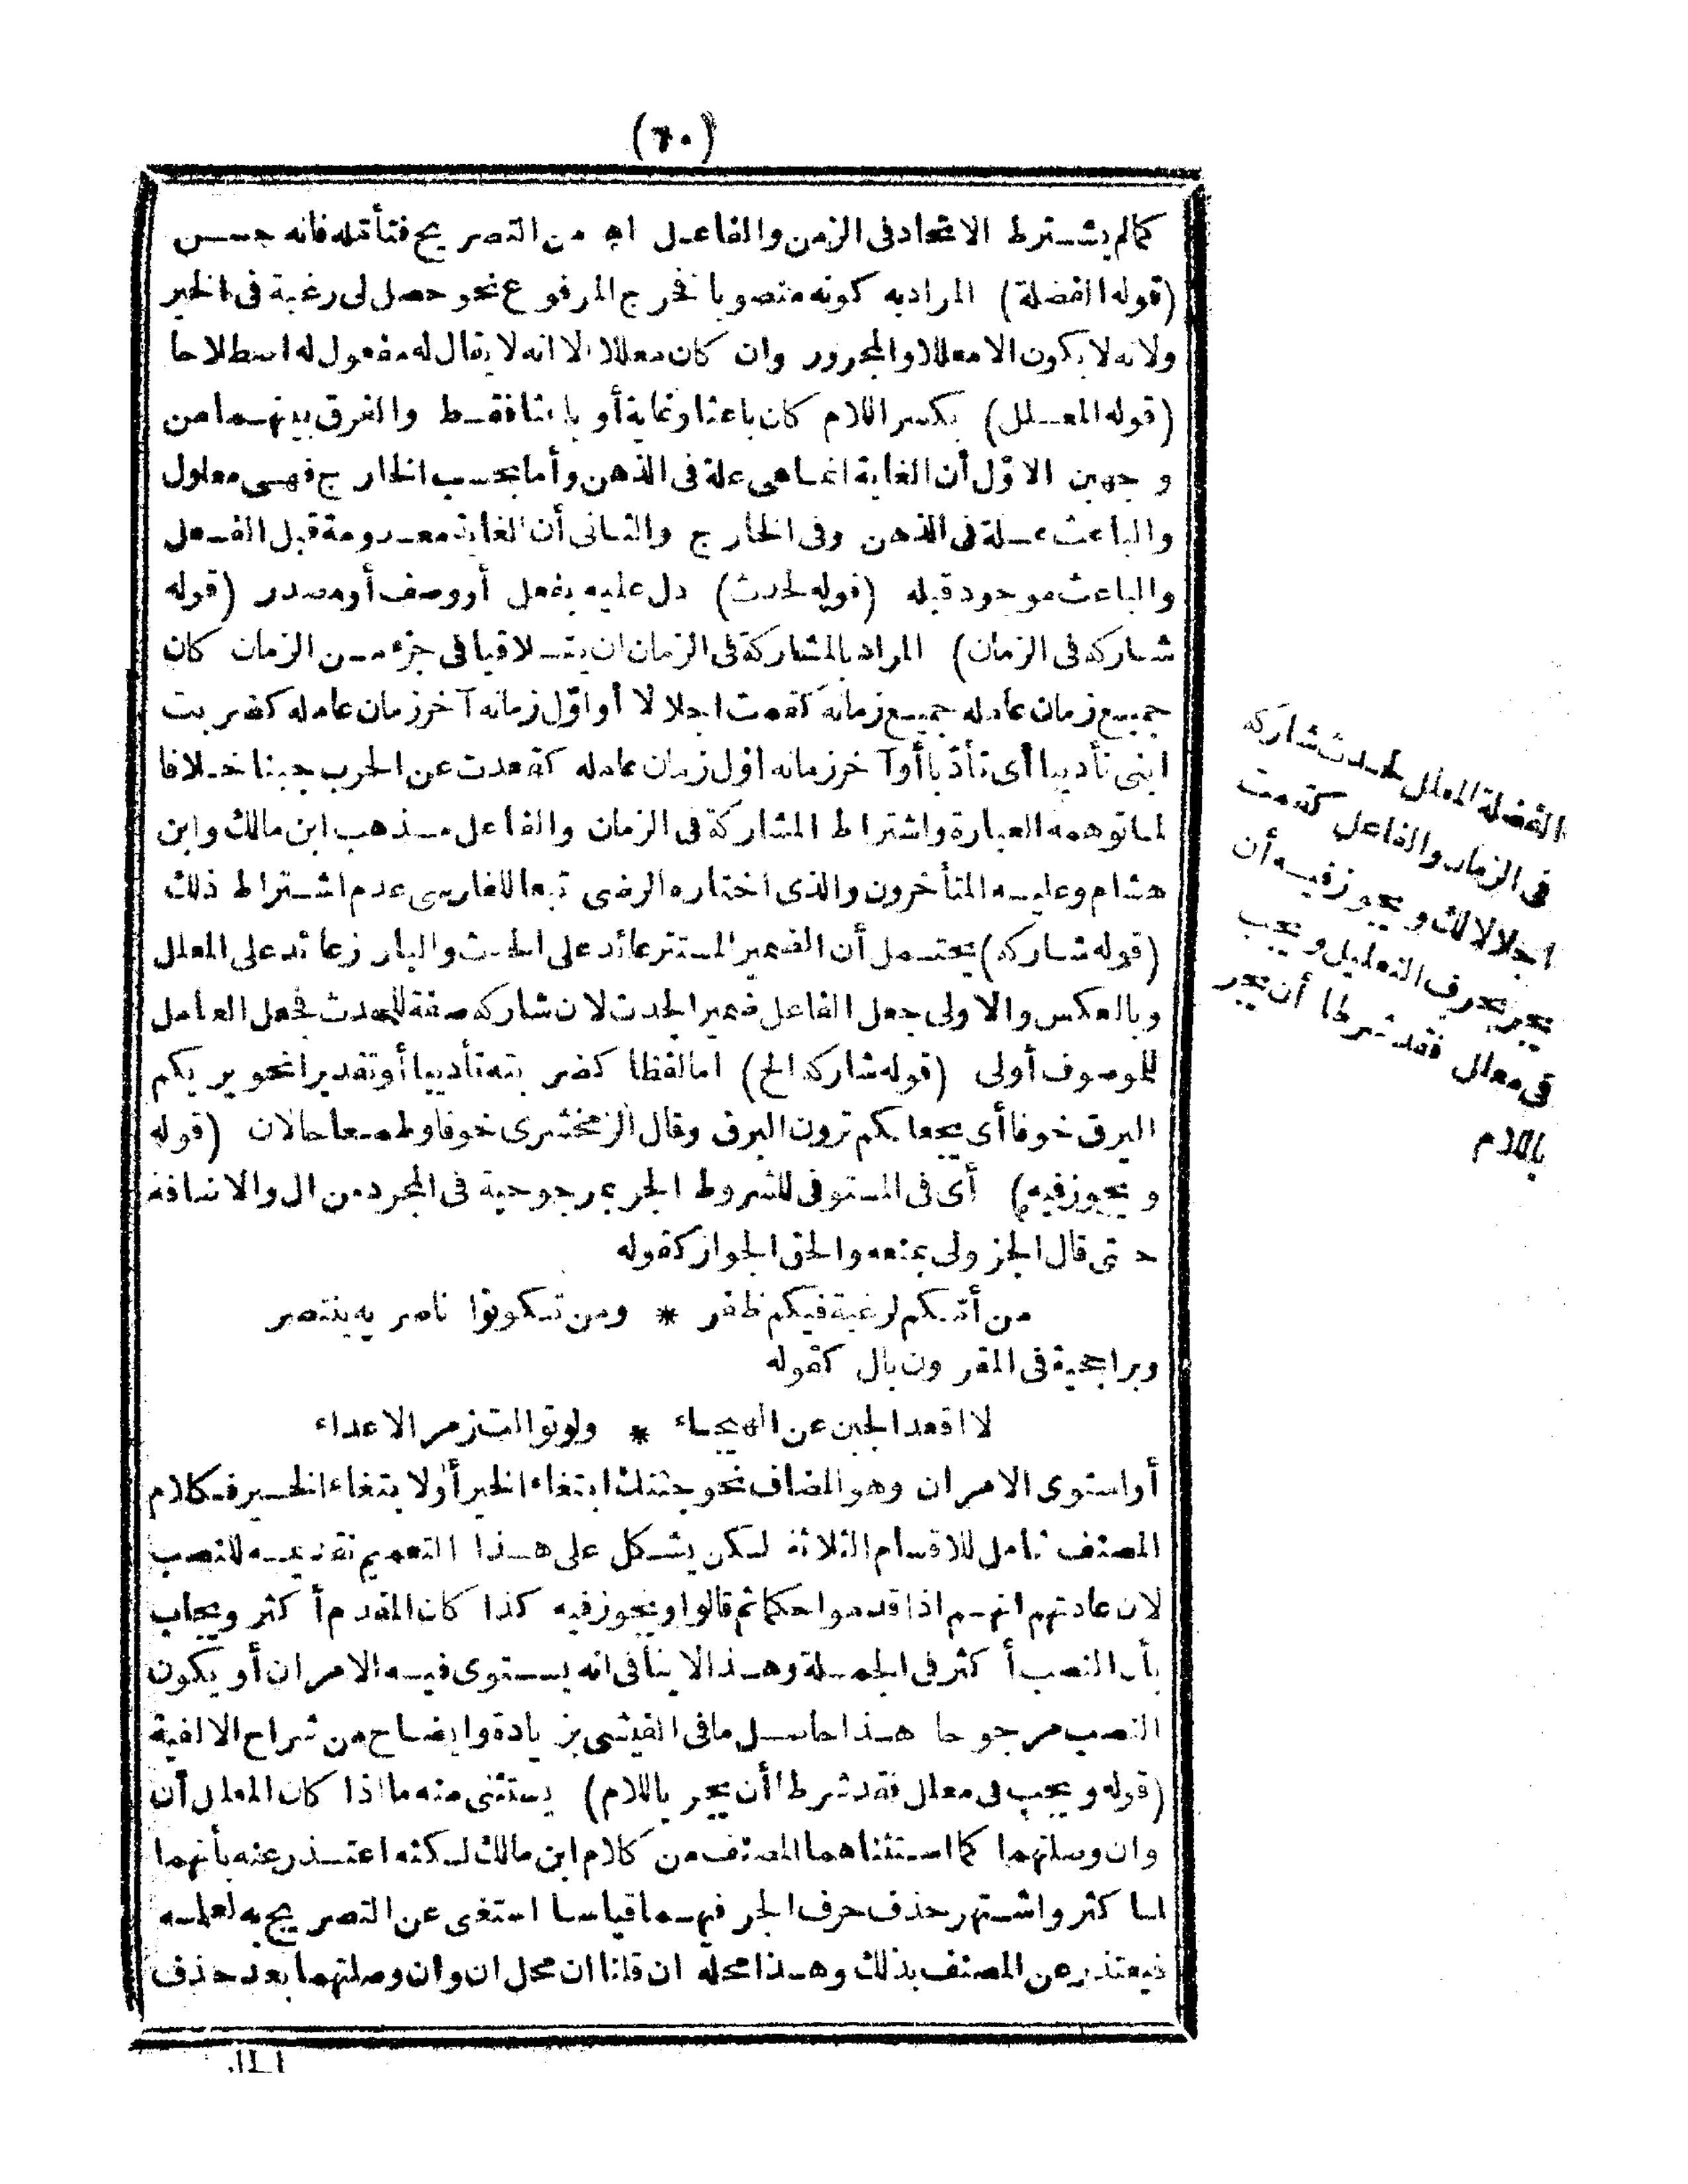 (٦٠)
كمالم يشترط الاتحاد فى الزمن والفاعل اه من التصريح فتأمله فانه حسن
(قوله الفضلة) المراد به كونه منصوبا نخرج المرفوع نحو حصل لى رغبة فى الخير
ولانه لا يكون الا معللا والمجرور وان كان معللا الا انه لا يقال له مفعول له اصطلاحا
(قوله المعلل) بكسر اللام كان باعثا وغاية أو باعثا فقط والفرق بينهما من
وجهين الاول أن الغاية انما هى علة فى الذهن وأما بحسب الخارج فهى معلول
والباعث علة فى الذهن وفى الخارج والثانى أن الغاية معدومة قبل الفعل
والباعث موجود قبله (قوله لحدث) دل عليه بفعل أو وصف أو مصدر (قوله
شاركه فى الزمان) المراد بالمشاركة فى الزمان ان يتلاقيا فى جزء من الزمان كان
جميع زمان عامله جميع زمانه كقمت اجلالا أو اول زمانه آخر زمان عامله كضربت
ابنى تأديبا أى تأدبا أو آخر زمانه اول زمان عامله كقعدت عن الحرب جبنا خلافا
لما توهمه العبارة واشتراط المشاركة فى الزمان والفاعل مذهب ابن مالك وابن
هشام وعليه المتأخرون والذى اختاره الرضى تبعا للفارسى عدم اشتراط ذلك
(قوله شاركه) يحتمل أن الضمير المستتر عائد على الحدث والبارز عائد على المعلل
وبالعكس والاولى جعل الفاعل ضمير الحدث لان شاركه صفة للحدث فجعل العامل
للموصوف أولى (قوله شاركه الخ) اما لفظا كضربته تأديبا أو تقديرا نحو يريكم
البرق خوفا أى يجعلكم ترون البرق وقال الزمخشرى خوفا وطمعا حالان (قوله
ويجوز فيه) أى فى المستوفى للشروط الجر بمرجوحية فى المجرد من ال والاضافة
حتى قال الجزولى بمنعه والحق الجواز كقوله
من أمكم لرغبة فيكم ظفر * ومن تكونوا ناصريه ينتصر
وبراجحية فى المقرون بال كقوله
لا اقعد الجبن عن الهيجاء * ولو توالت زمر الاعداء
أو استوى الامران وهو المضاف نحو جئتك ابتغاء الخير أو لابتغاء الخير فكلام
المصنف شامل للاقسام الثلاثة لكن يشكل على هذا التعميم تقديمه للنصب
لان عادتهم انهم اذا قدموا حكما ثم قالوا ويجوز فيه كذا كان المقدم أكثر ويجاب
بأن النصب أكثر فى الجملة وهذا لا ينافى انه يستوى فيه الامران أو يكون
النصب مرجوحا هذا حاصل ما فى الفيشى بزيادة وايضاح من شراح الالفية
(قوله ويجب فى معلل فقد شرطا أن يجر باللام) يستثنى منه ما اذا كان المعلل أن
وان وصلتهما كما استثناهما المصنف من كلام ابن مالك لكنه اعتذر عنه بأنهما
لما كثر واشتهر حذف حرف الجر فيهما قياسا استغنى عن التصريح به لعلمه
فيعتذر عن المصنف بذلك وهذا محله ان قلنا ان محل ان وان وصلتهما بعد حذف
الفضلة المعلل لحدث شاركه
فى الزمان والفاعل كقمت
اجلالا لك ويجوز فيه أن
يجر بحرف التعليل ويجب
فى معلل فقد شرطا أن يجر
باللام